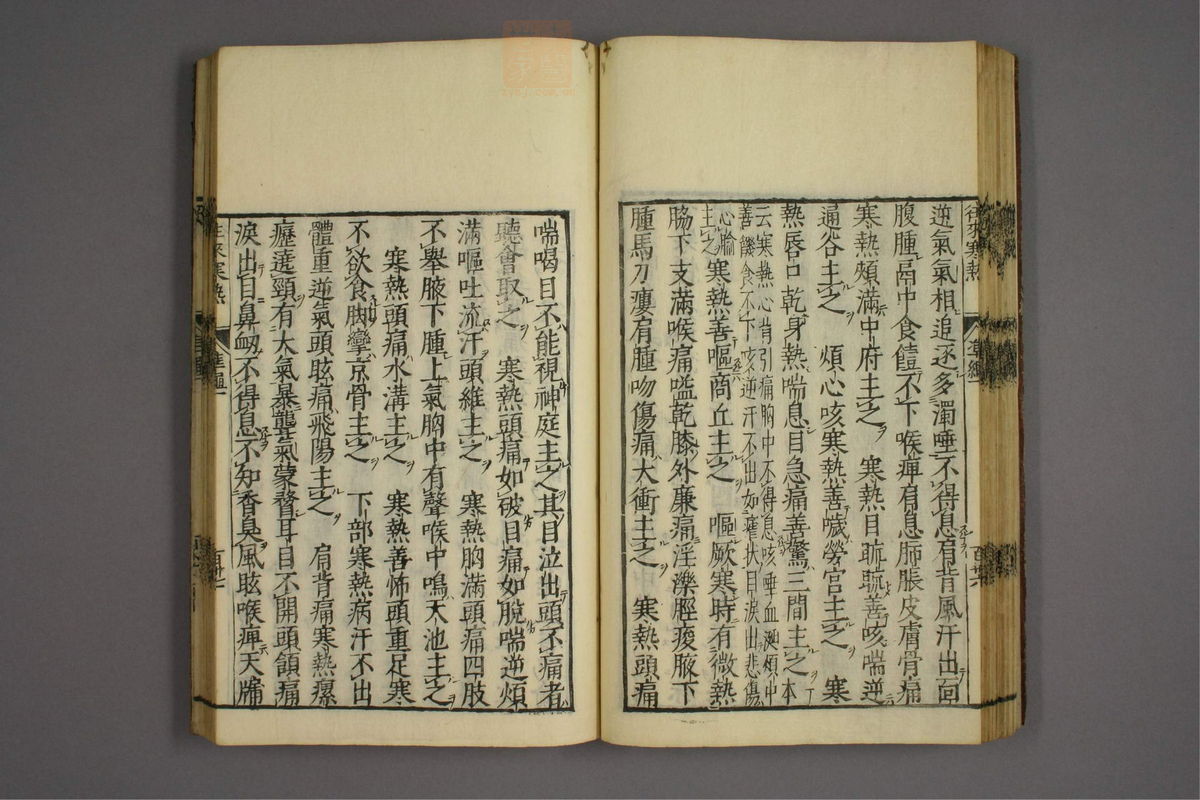 往來寒熱
逆氣氣相追逐多濁唾不得息肩背風汗出面
腹腫鬲中食饐不下喉痺肩息肺脹皮膚骨痛
寒熱煩滿中府主之　寒熱目䀮䀮善咳喘逆
通谷主之　煩心咳寒熱善噦勞宮主之　寒
熱唇口乾身熱喘息目急痛善驚三間主之本
云寒熱心背引痛胸中不得息咳唾血涎煩中
善饑食不下咳逆汗不出如瘧狀目淚出悲傷
心腧
主之
寒熱善嘔商丘主之　嘔厥寒時有微熱
脇下支滿喉痛嗌乾膝外廉痛淫濼脛痠腋下
腫馬刀瘻肩腫吻傷痛太衝主之　寒熱頭痛
喘喝目不能視神庭主之其目泣出頭不痛者
聽會取之　寒熱頭痛如破目痛如脫喘逆煩
滿嘔吐流汗頭維主之　寒熱胸滿頭痛四肢
不舉腋下腫上氣胸中有聲喉中鳴天池主之
寒熱頭痛水溝主之　寒熱善怖頭重足寒
不欲食脚攣京骨主之　下部寒熱病汗不出
體重逆氣頭眩痛飛陽主之　肩背痛寒熱瘰
癧遶頸有大氣暴聾氣蒙瞀耳目不開頭頷痛
淚出目鼻衂不得息不知香臭風眩喉痺天牖